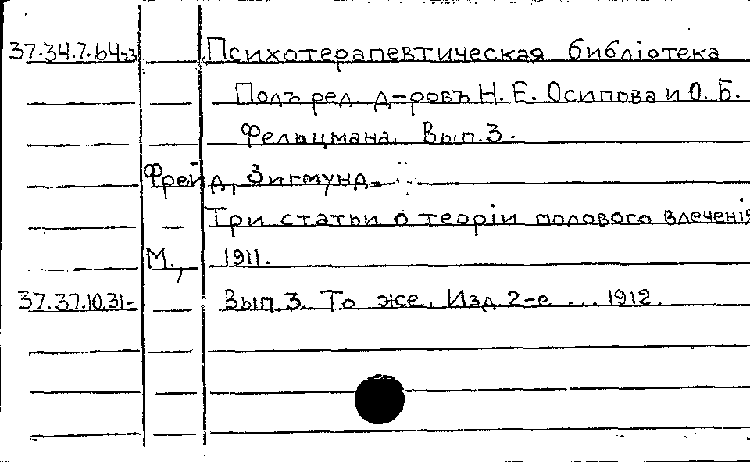 37.34.7.64-3 Психотерапевтическая библіотека
Подъ ред. д-ровъ Н. Е. Осипова и О. Б.
Фельцмана. Вып. 3.
Фрейд, Зигмунд.
Три статьи о теоріи полового влеченія
М., 1911.
37.37.10.31- Вып. 3. То же. Изд. 2-е ... 1912.